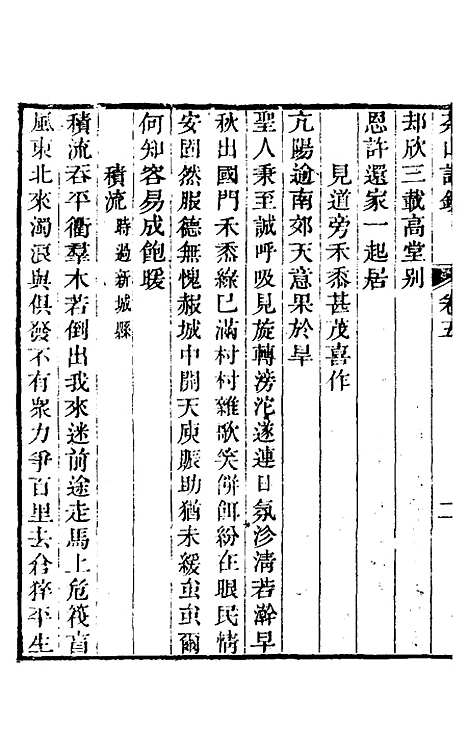 茶山詩鈔 卷五 二
却欣三載高堂別
恩許還家一起居
見道旁禾黍甚茂喜作
亢陽逾南郊天意果於旱
聖人秉至誠呼吸見旋轉滂沱遂連日氛沴清若澣早
秋出國門禾黍綠已滿村村雜歌笑併餌紛在眼民情
安固然服德無愧赧城中開天庾賑助猶未緩䖝䖝爾
何知容易成飽暖
積流 時過新城縣
積流吞平衢羣木若倒出我來迷前途走馬上危筏盲
風東北來濁浪與俱發不有衆力爭百里去倉猝平生